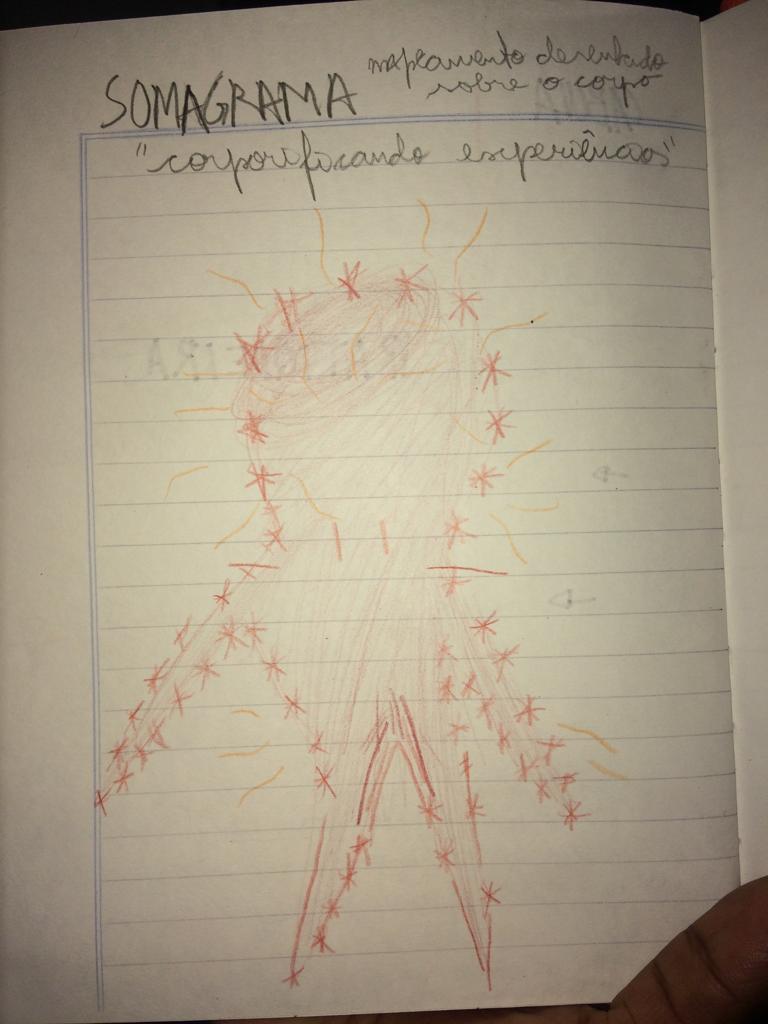 SOMAGRAMA
mapeamento desenhado
sobre o corpo
"corporificando experiências"